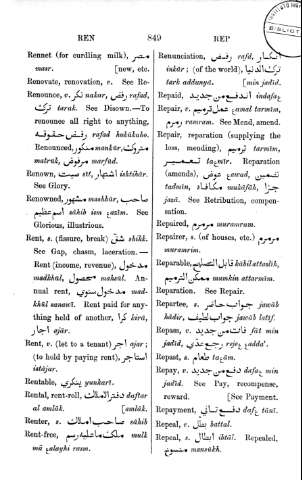 REN 849 REP
Rennet (for curdling milk), مصر
masr. [new, etc.
Renovate, renovation, v. See Re-
Renounce, v. نكر nakar, رفض rafad,
ترك tarak. See Disown.—To
renounce all right to anything,
رفض حقوقه rafad hokûkaho.
Renounced, منكور mankûr, متروك
matrûk, مرفوض marfûd.
Renown, صيت sît, اشتهار ishtihâr.
See Glory.
Renowned, مشهور mashhûr, صاحب
اسم عظيم sâhib ism ʿazîm. See
Glorious, illustrious.
Rent, s. (fissure, break) شق shikk.
See Gap, chasm, laceration.—
Rent (income, revenue), مدخول
madkhûl, محصول mahsûl. An-
nual rent, مدخول سنوي mad-
khûl sanawî. Rent paid for any-
thing held of another, كرا kirâ,
اجار ajâr.
Rent, v. (let to a tenant) اجر ajar;
(to hold by paying rent), استاجر
istâjar.
Rentable, ينكري yunkarî.
Rental, rent-roll, دفتر الاملاك daftar
al amlâk. [amlâk.
Renter, s. صاحب املاك sâhib
Rent-free, ملك ما عليه رسم mulk
mâ ʿalayhi rasm.
Renunciation, رفض rafd, انكار
inkâr; (of the world), ترك الدنيا
tark addunyâ. [min jadîd.
Repaid, اندفع من جديد indafaʿ
Repair, v. عمل ترميم ʿamal tarmîm,
رمرم ramram. See Mend, amend.
Repair, reparation (supplying the
loss, mending), ترميم tarmîm,
تعمير taʿmîr. Reparation
(amends), عوض ʿawad, تضمين
tadmîn, مكافاة mukâfâh, جزا
jazâ. See Retribution, compen-
sation.
Repaired, مرمرم muramram.
Repairer, s. (of houses, etc.) مرمرم
muramrim.
Reparable, قابل التصليح kâbil attaslîh,
ممكن الترميم mumkin attarmîm.
Reparation. See Repair.
Repartee, s. جواب حاضر jawâb
hâdir, جواب لطيف jawâb latîf.
Repass, v. فات من جديد fât min
jadîd, رجع عدى rajeʿ ʿadda'.
Repast, s. طعام taʿâm.
Repay, v. دفع من جديد dafaʿ min
jadîd. See Pay, recompense,
reward. [See Payment.
Repayment, دفع تاني dafʿ tânî.
Repeal, v. بطل battal.
Repeal, s. ابطال ibtâl. Repealed,
منسوخ mansûkh.